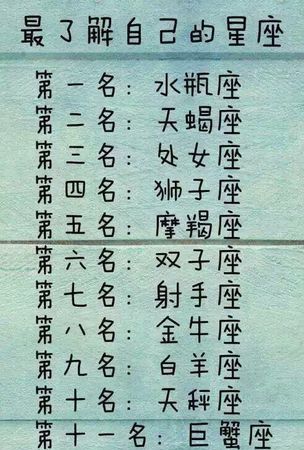 最了解自己的星座
第一名：水瓶座
第二名：天蝎座
第三名：处女座
第四名：狮子座
第五名：摩羯座
第六名：双子座
第七名：射手座
第八名：金牛座
第九名：白羊座
第十名：天秤座
第十一名：巨蟹座